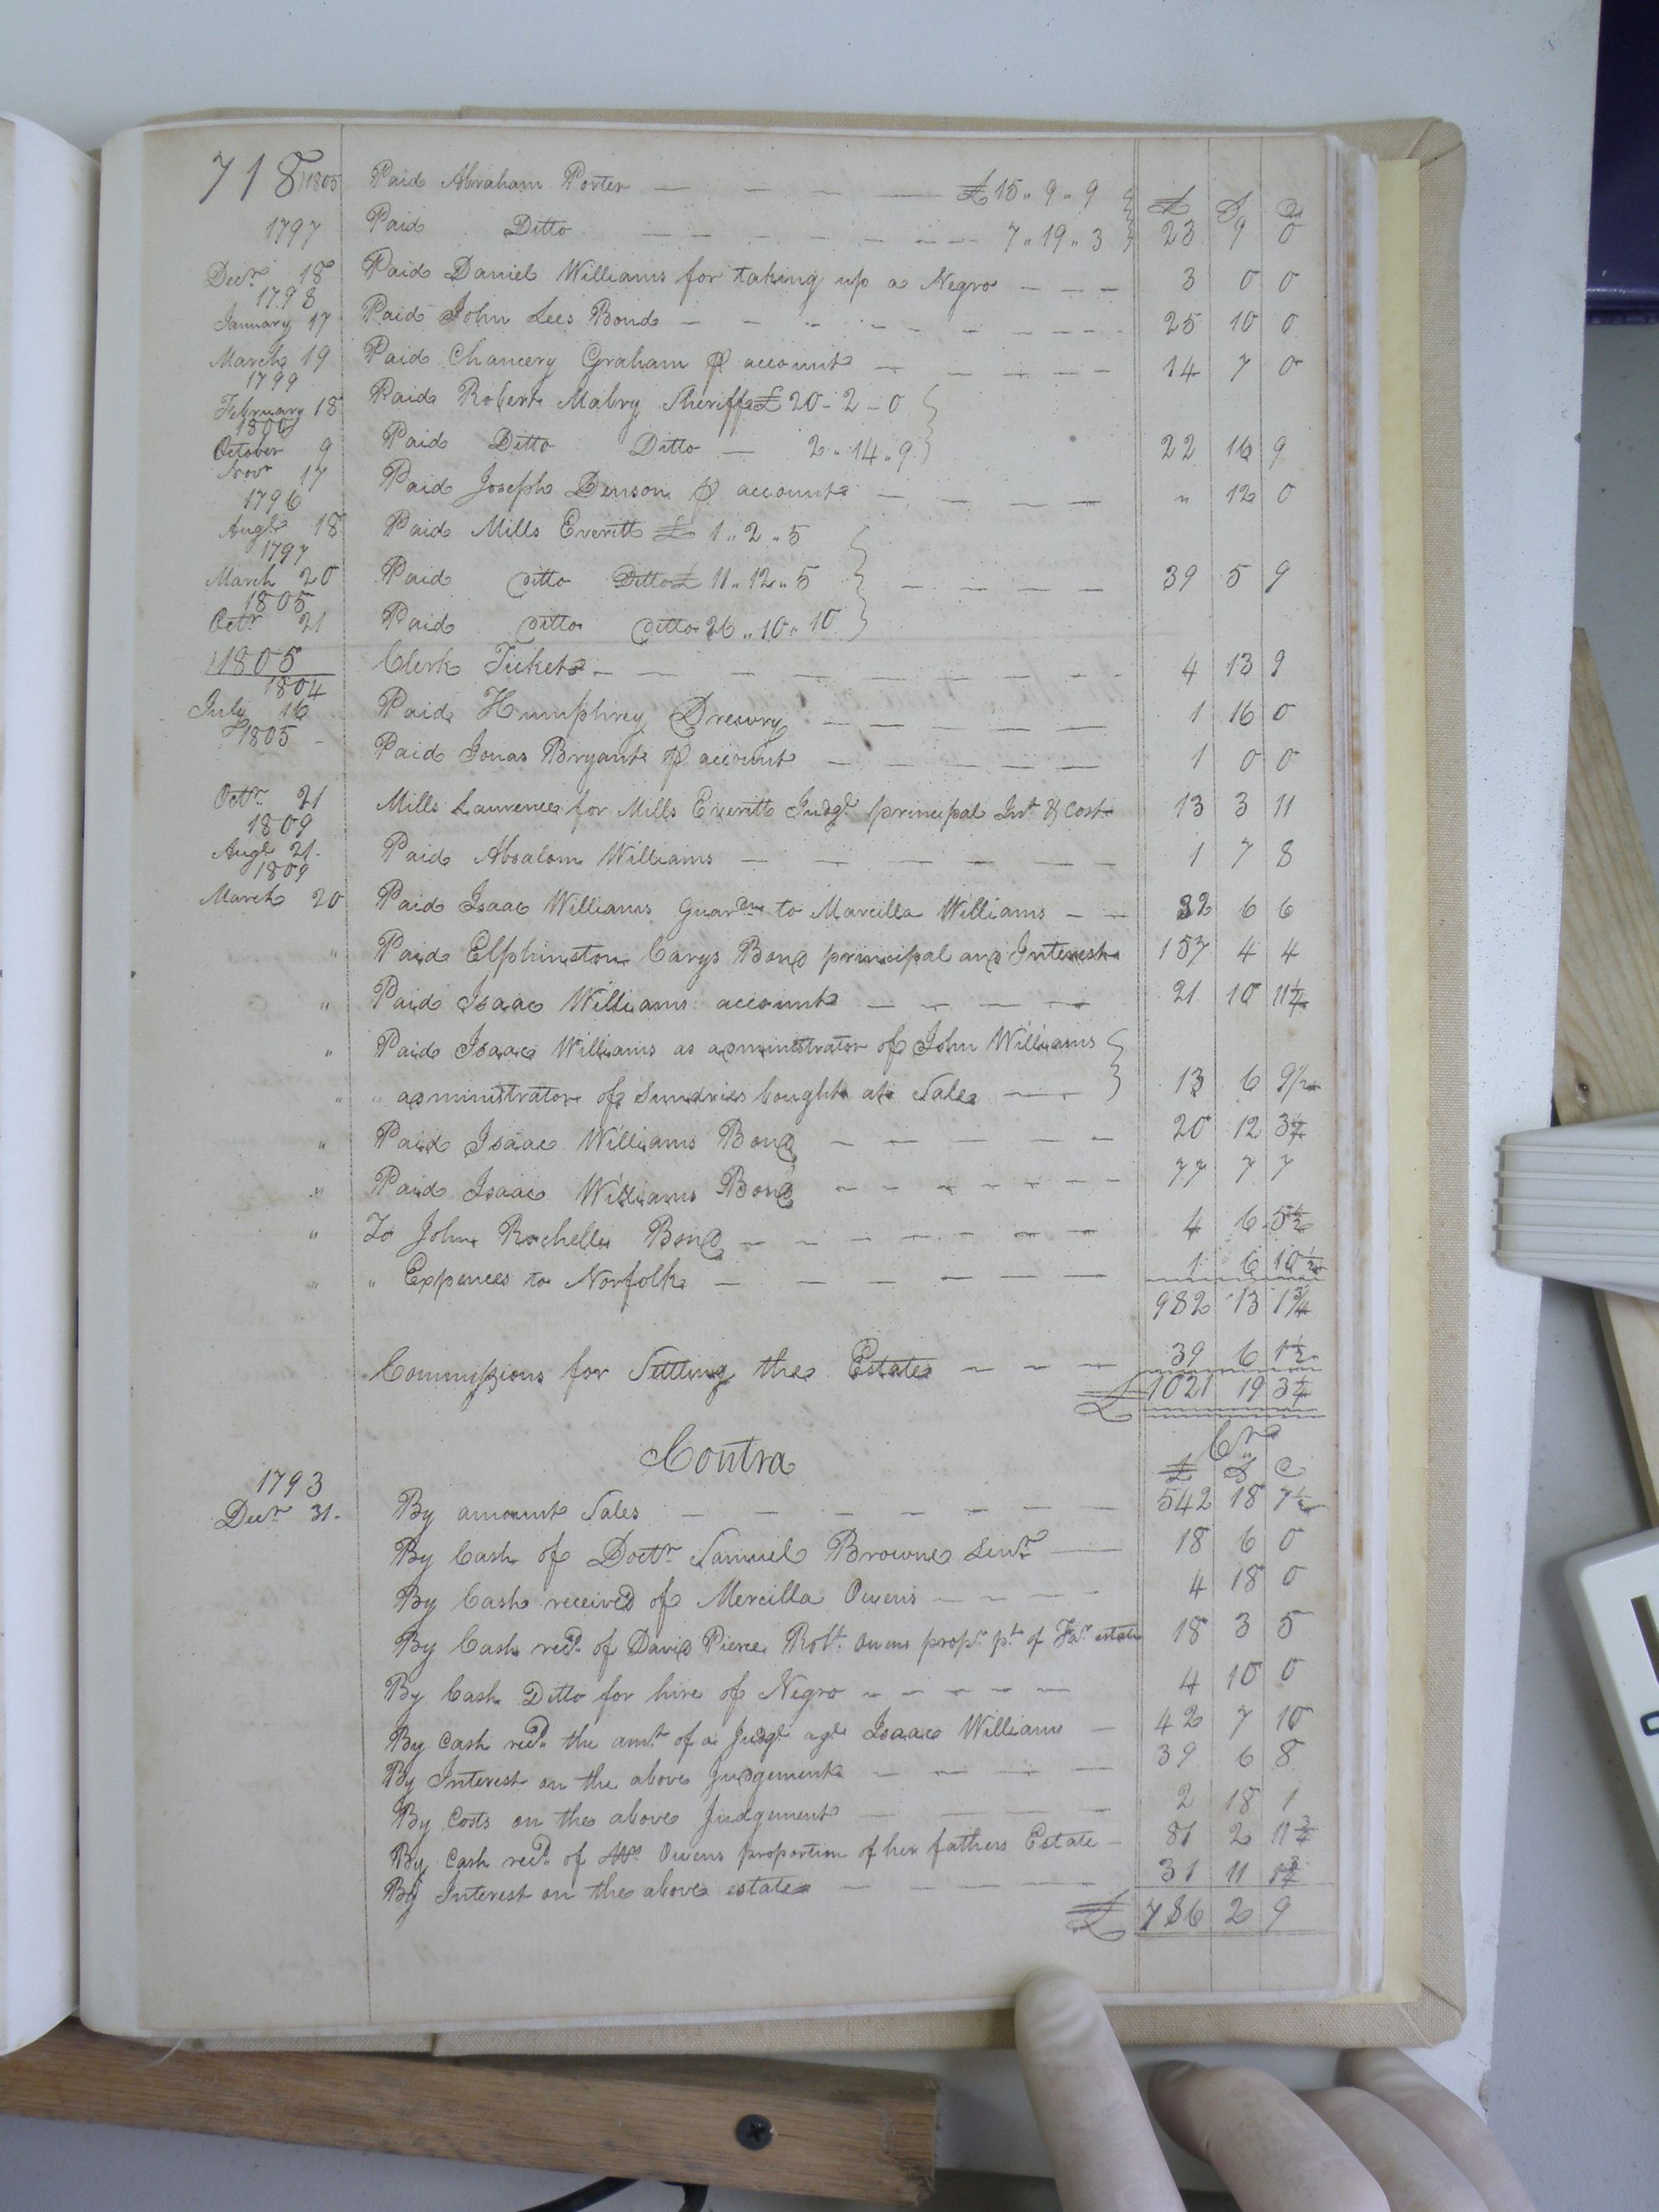 718 1805 Paid Abraham Porter — — — — £ 15 " 9 " 9 £ S D
1797 Paid Ditto — — — — — — — 7 " 19 " 3 23 9 0
Decr. 18 Paid Daniel Williams for taking up a Negro — — — 3 0 0
1798
January 17 Paid John Lees Bond — — — — — — — — — 25 10 0
March 19 Paid Chancery Graham ⅌ account — — — — — 14 7 0
1799
February 18 Paid Robert Mabry Sheriff £ 20 - 2 - 0
1800
October 9 Paid Ditto Ditto — 2 " 14 " 9 22 16 9
Novr 17 Paid Joseph Denson ⅌ account — — — — " 12 0
1796
Augt 18 Paid Mills Everitt £ 1 " 2 " 5
1797
March 20 Paid Ditto Ditto £ 11 " 12 " 5 — — — — 39 5 9
1805
Octr 21 Paid Ditto Ditto 26 " 10 " 10
1805 Clerk Tickets — — — — — — — — 4 13 9
1804
July 16 Paid Humphrey Drewry — — — — — 1 16 0
1805 Paid Jonas Bryant ⅌ account — — — — — 1 0 0
Octr. 21 Mills Laurence for Mills Everitt Judgt principal Int & Cost 13 3 11
1809
Augt 21. Paid Absalom Williams — — — — — — 1 7 8
1809
March 20 Paid Isaac Williams Guardn to Marcilla Williams — — 32 6 6
" Paid Elphinston Carys Bond principal and Interest 157 4 4
" Paid Isaac Williams account — — — — — 21 10 11¼
" Paid Isaac Williams as administrator of John Williams
" " administrator of Sundries bought at Sale — — 13 6 9½
" Paid Isaac Williams Bond — — — — — — 20 12 3¼
" Paid Isaac Williams Bond — — — — — — — 77 7 7
" To John Rochelle Bond — — — — — — — 4 6 5½
" " Expences to Norfolk — — — — — — 1 6 10½
982 13 1¾
Commissions for Settling the Estate — — — 39 6 1½
£ 1021 19 3¼
Contra Cr
1793 £ S D
Decr 31. By amount Sales — — — — — — — 542 18 7½
By Cash of Doctr Samuel Browne Senr — 18 6 0
By Cash received of Mercilla Owens — — — — 4 18 0
By Cash recd. of David Pierce Robt. Owens propn pt. of Far estate 18 3 5
By Cash Ditto for hire of Negro — — — — — 4 10 0
By Cash recd. the amt of a Judgt agt Isaac Williams — 42 7 10
By Interest on the above Judgement — — — — 39 6 8
By Costs on the above Judgement — — — — 2 18 1
By Cash recd. of Mrs Owens proportion of her fathers Estate — 81 2 11¾
By Interest on the above estate — — — — 31 11 1¾
£ 786 2 9